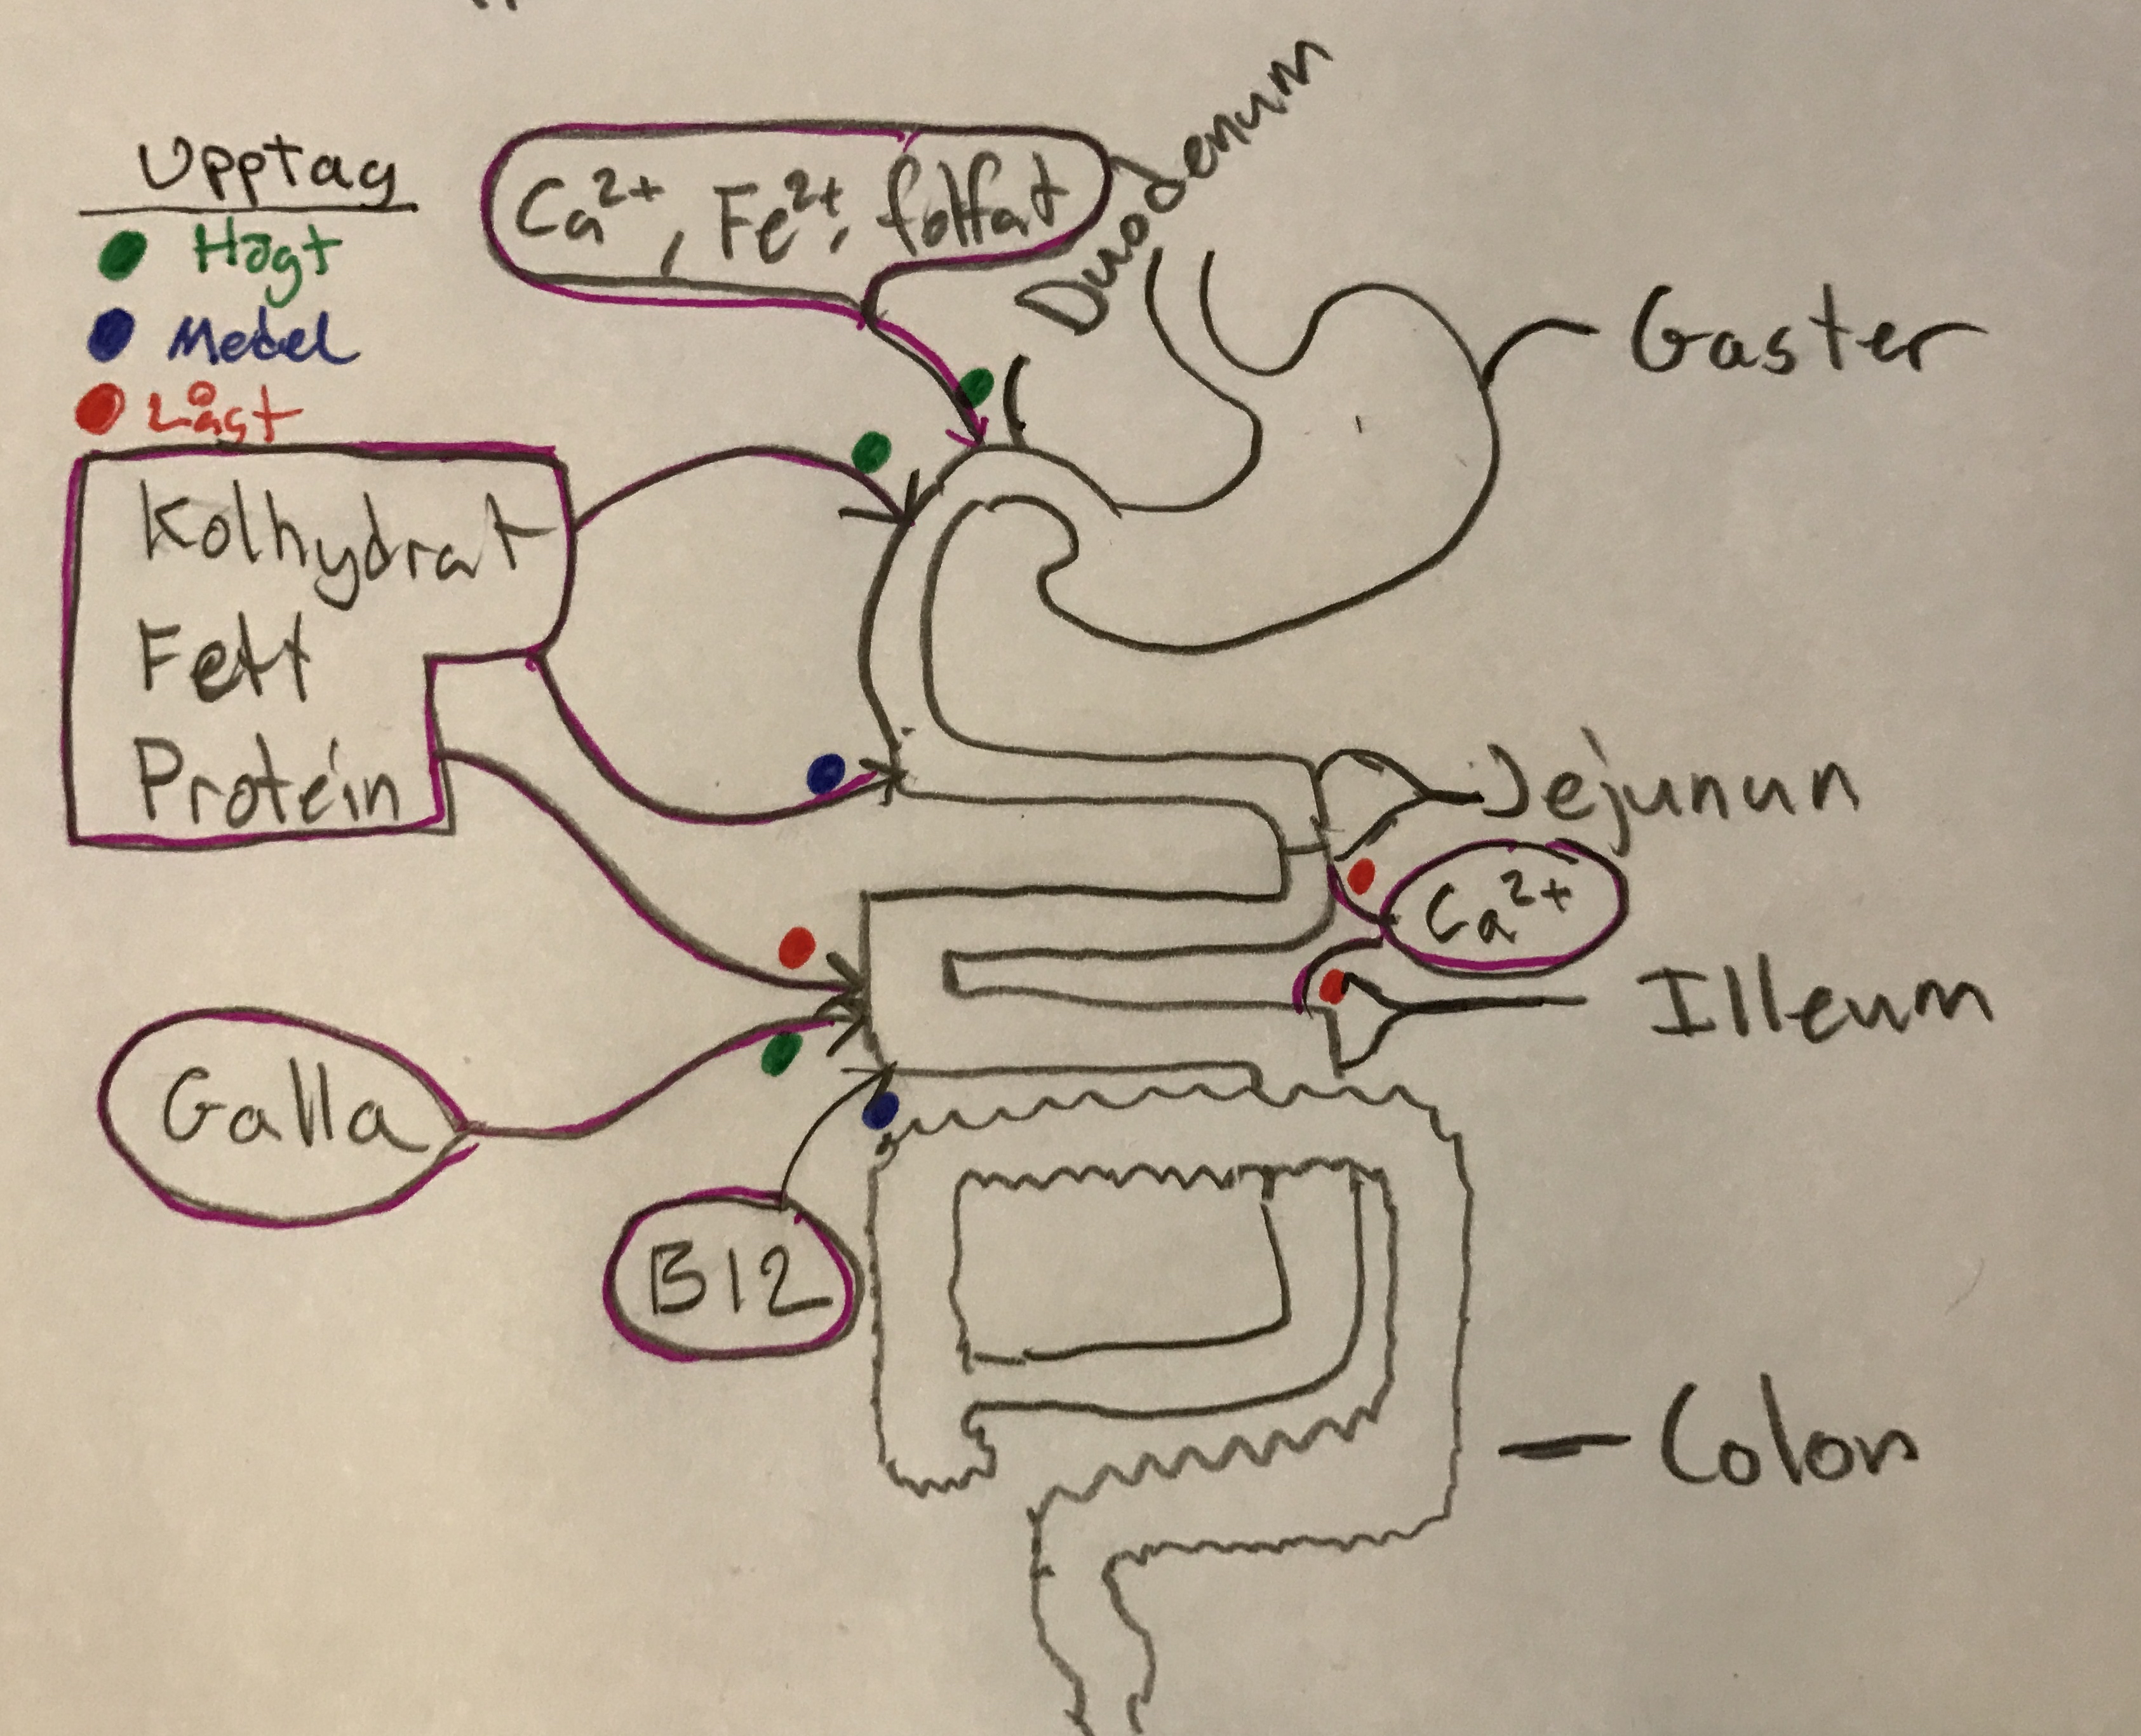 Upptag
Högt
Medel
Lågt
Ca²⁺, Fe²⁺, folfat
Duodenum
Gaster
Kolhydrat
Fett
Protein
Jejunun
Ca²⁺
Illeum
Galla
B12
Colon